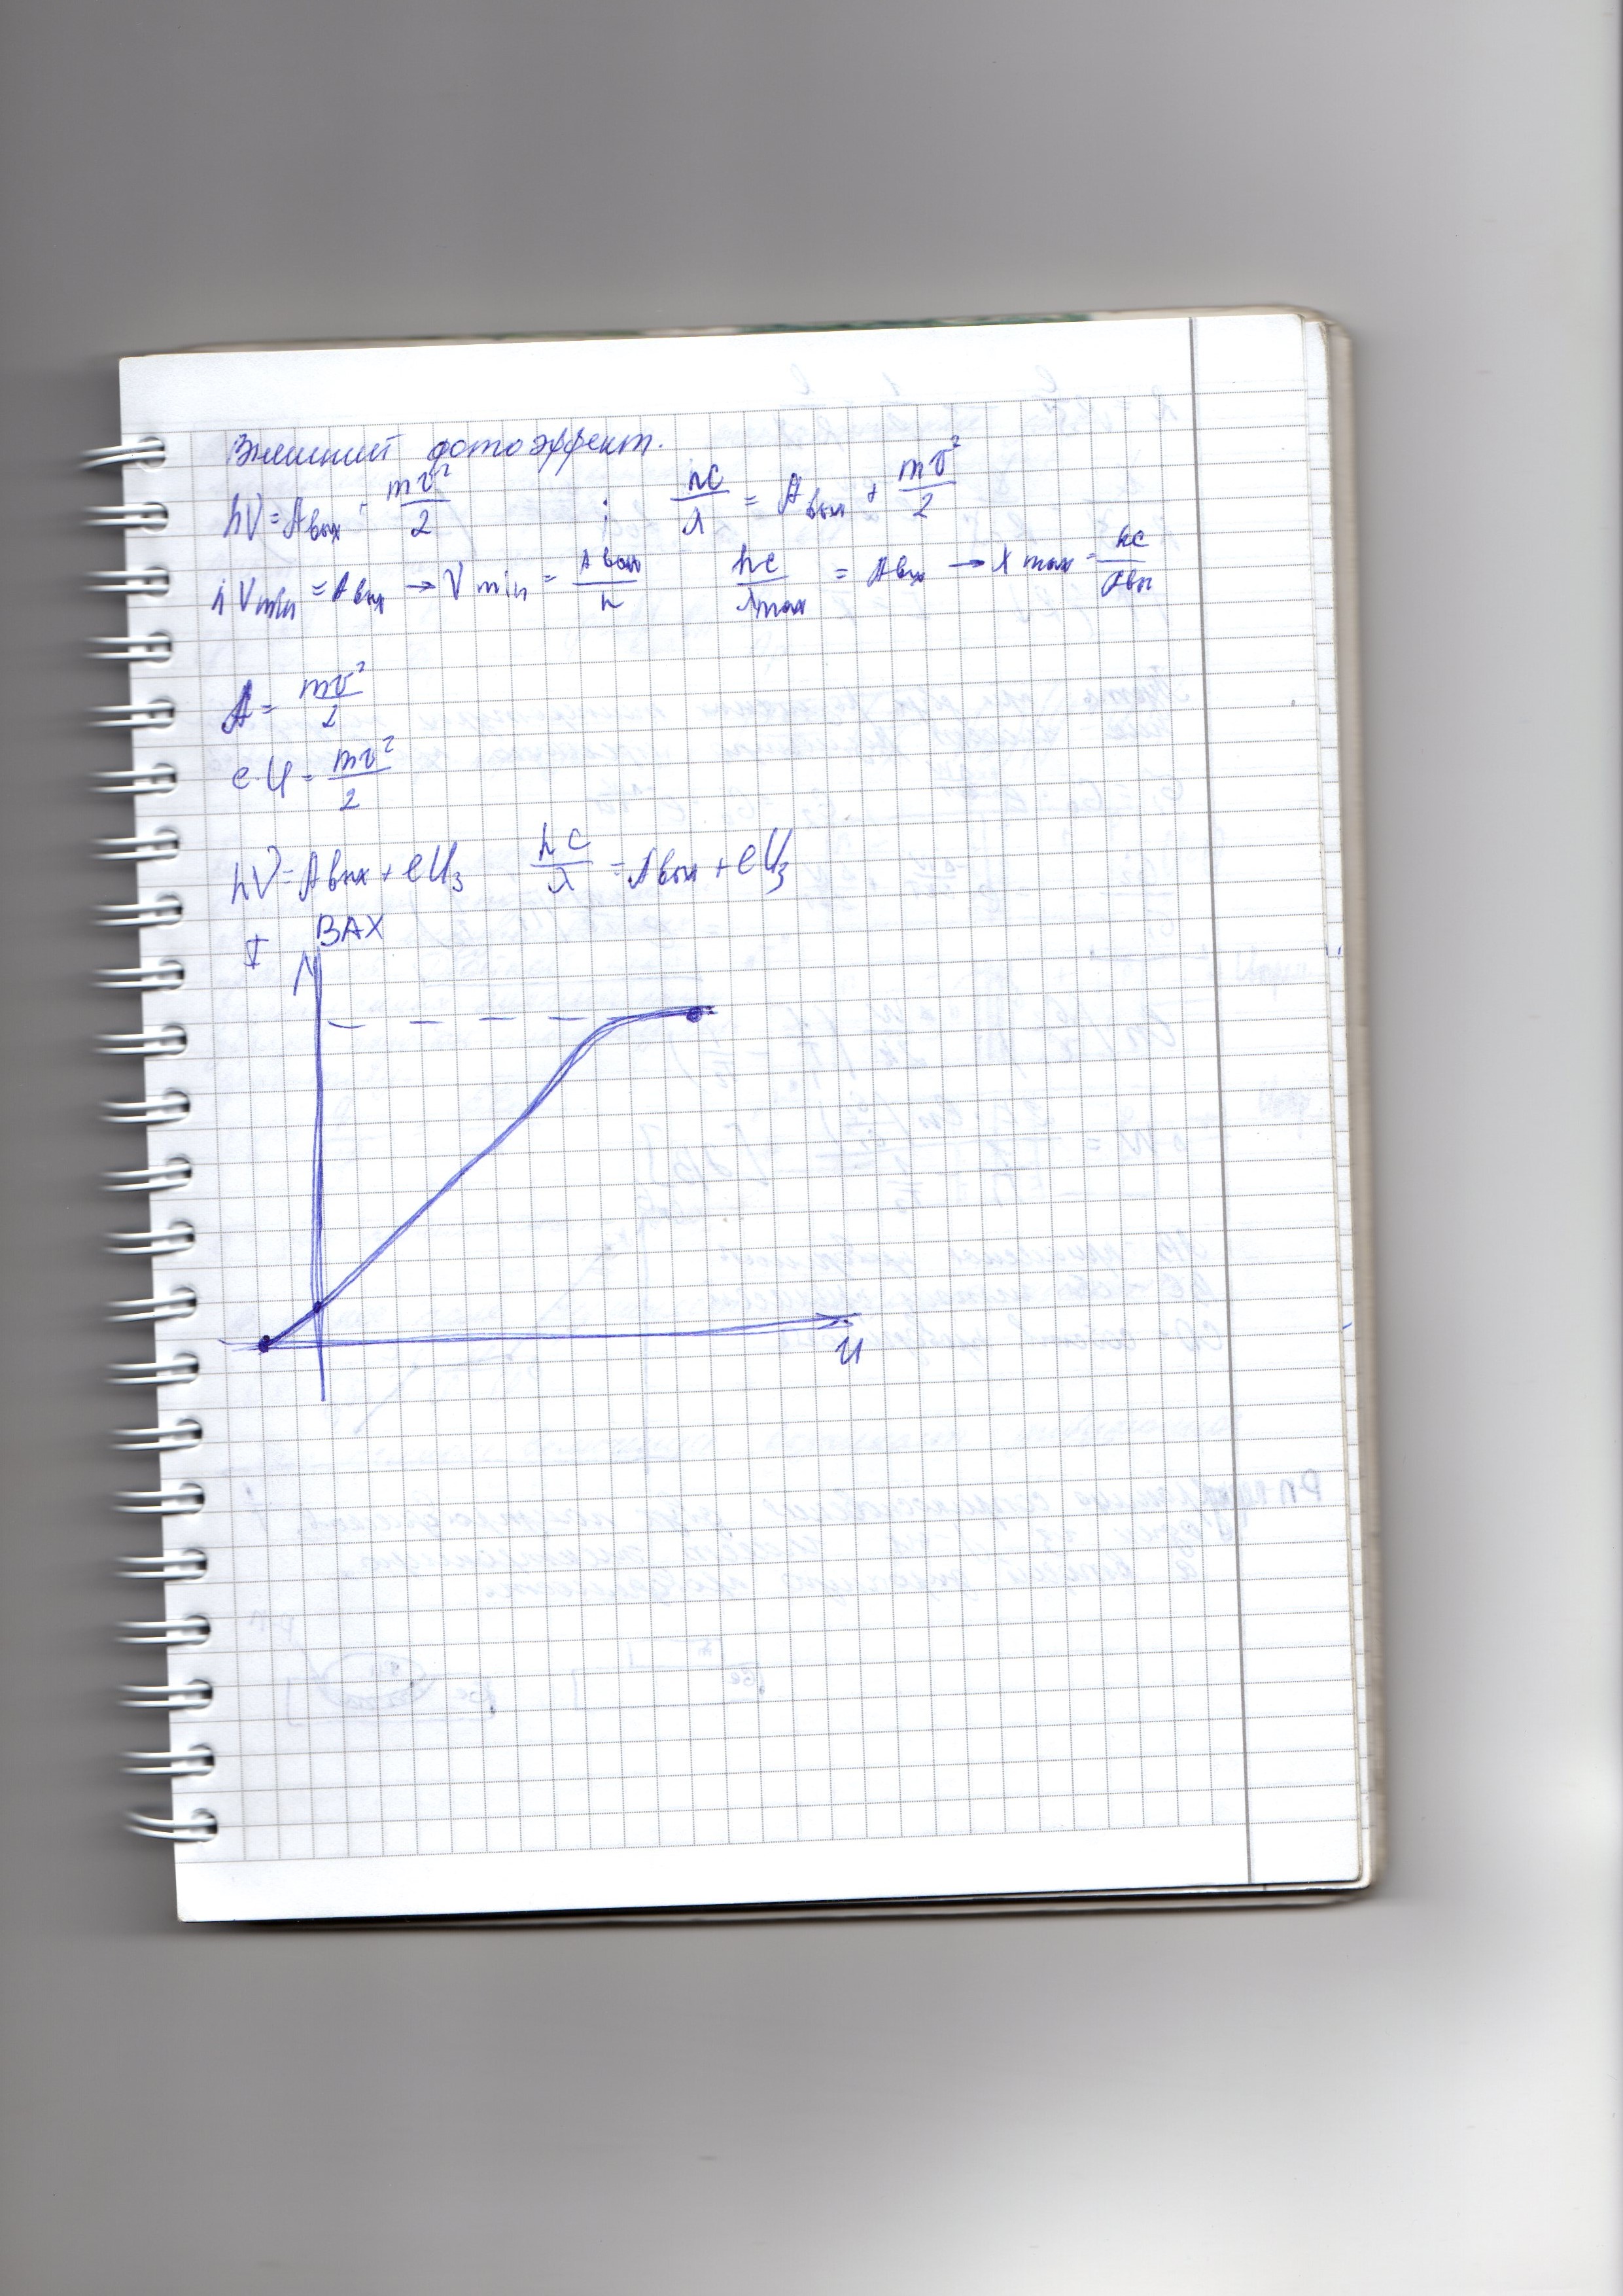 Внешний фотоэффект.
hν = Aвых + mv²/2 ; hc/λ = Aвых + mv²/2
hνmin = Aвых → νmin = Aвых/h hc/λmax = Aвых → λmax = hc/Aвых
A = mv²/2
e·U = mv²/2
hν = Aвых + eUз hc/λ = Aвых + eUз
ВАХ
I
U